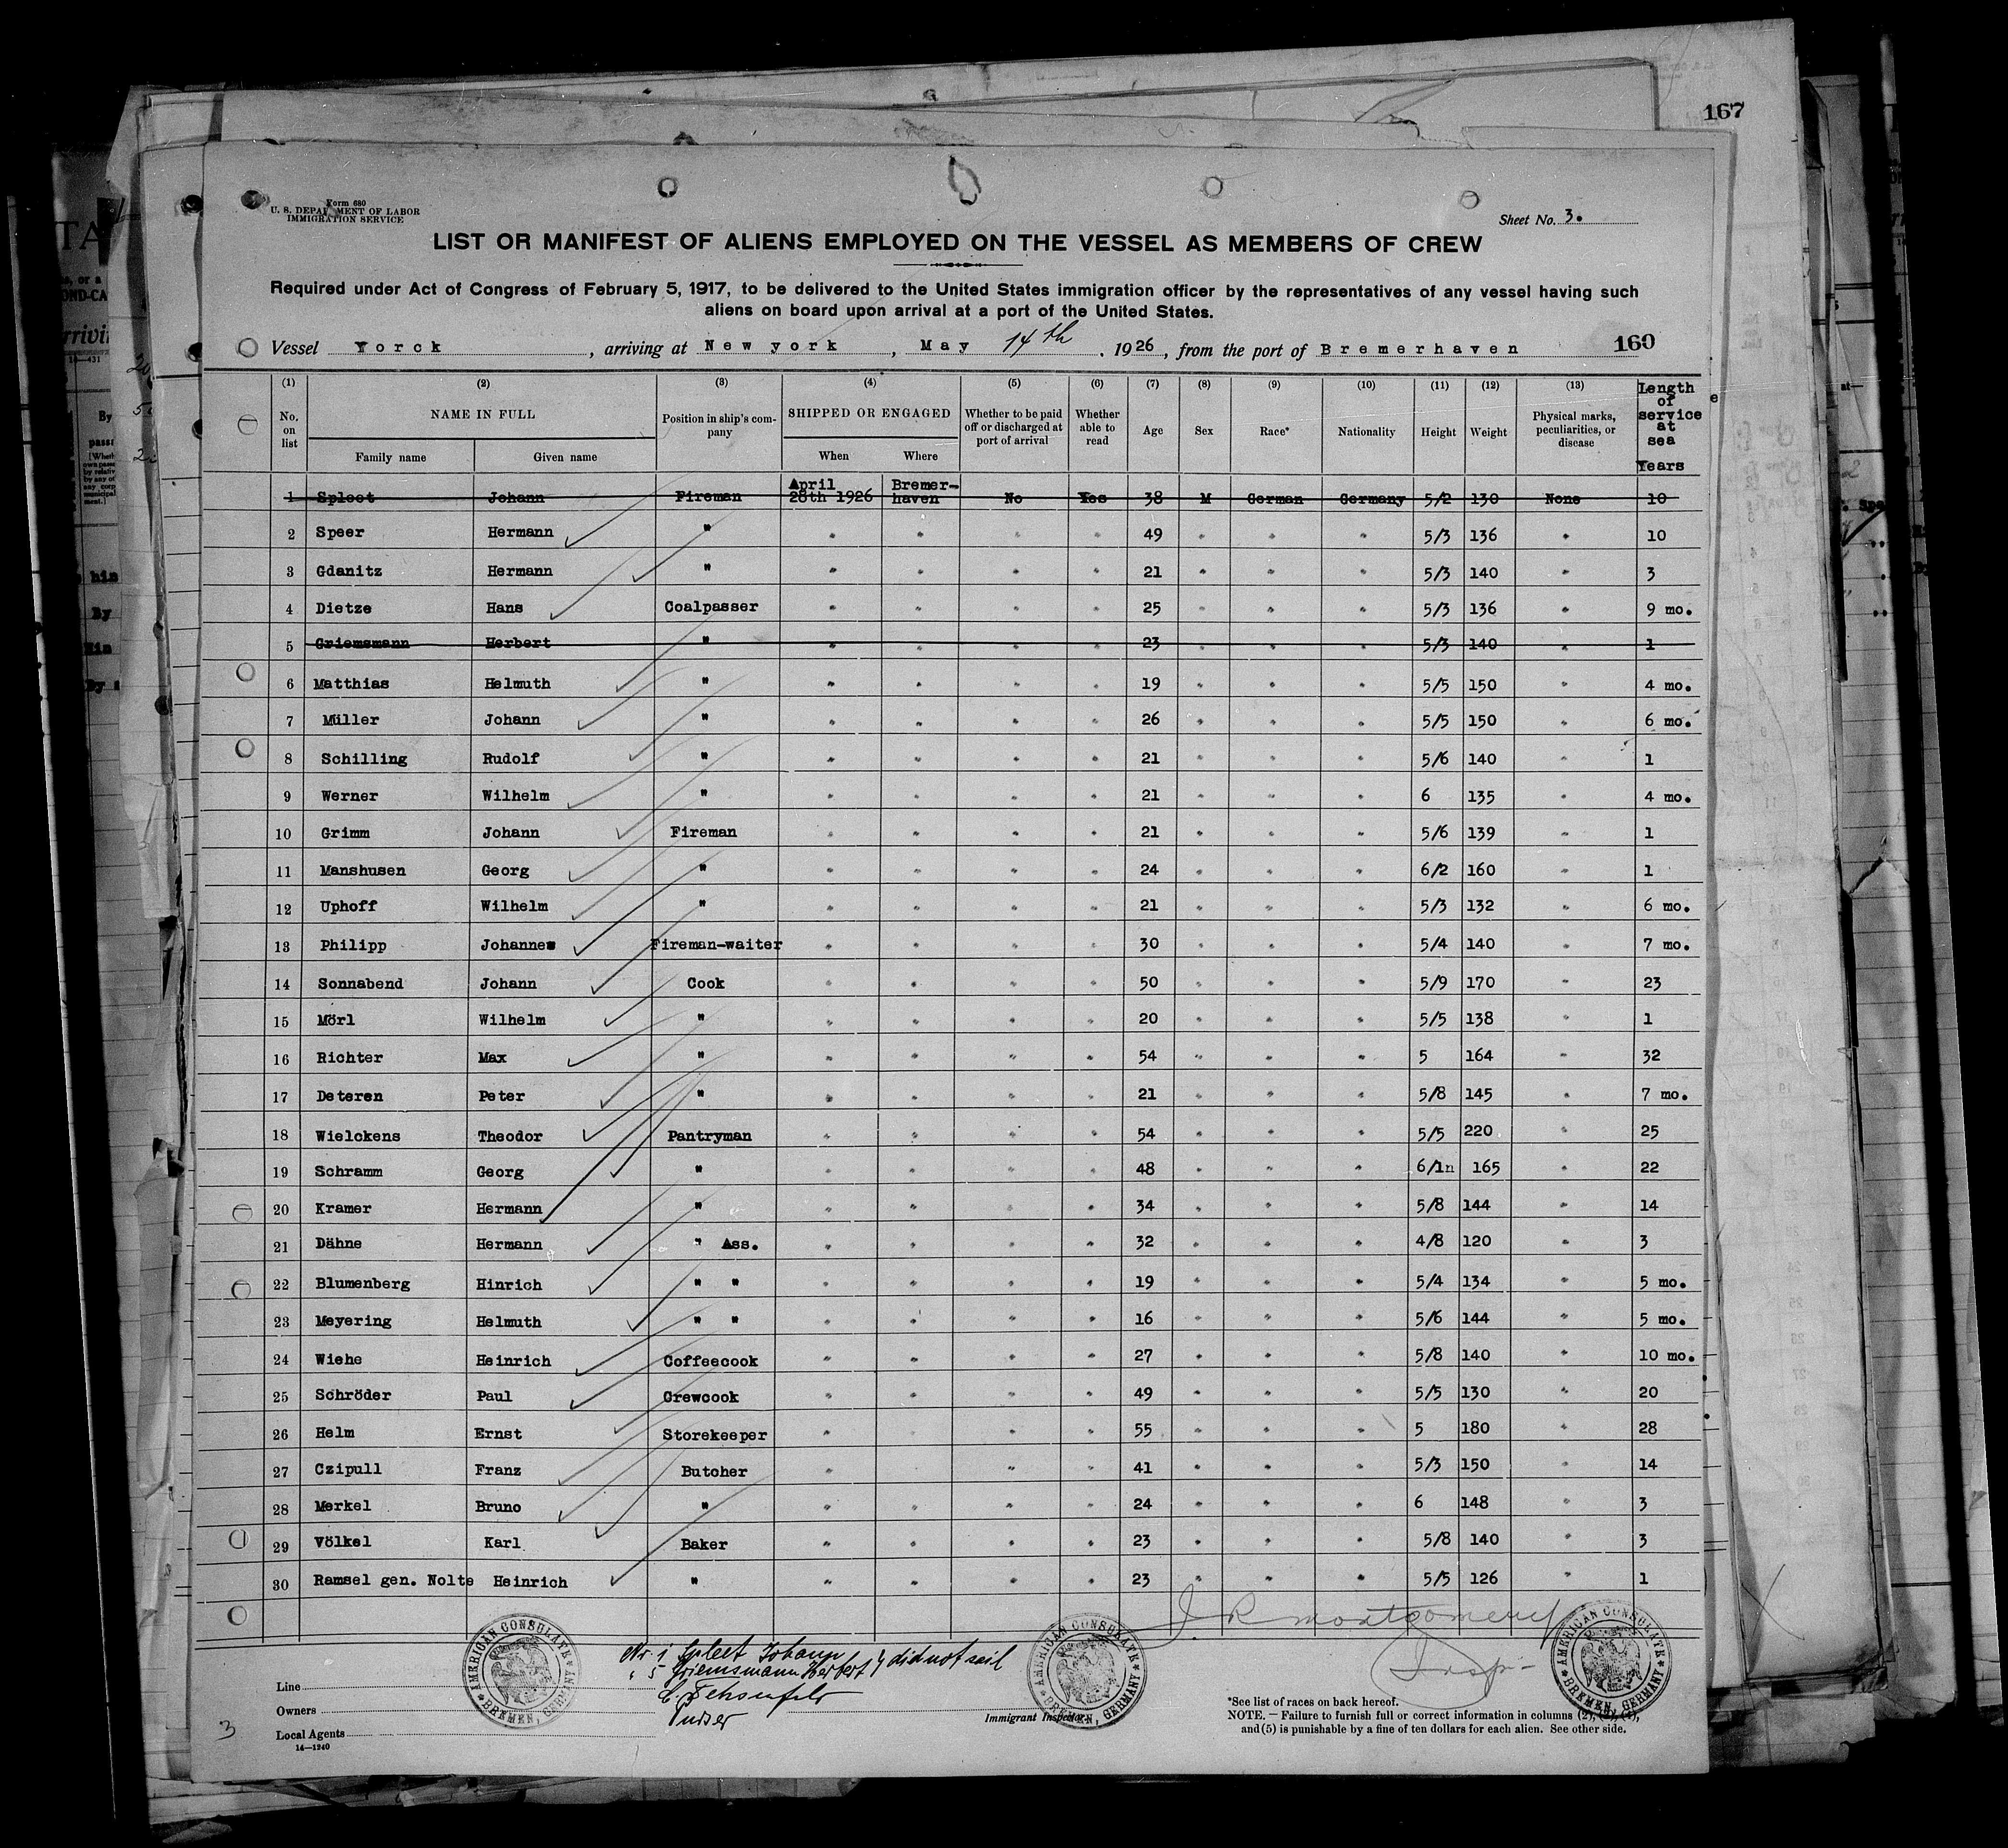 167
Form 680
U. S. DEPARTMENT OF LABOR
IMMIGRATION SERVICE
Sheet No. 3.
LIST OR MANIFEST OF ALIENS EMPLOYED ON THE VESSEL AS MEMBERS OF CREW
Required under Act of Congress of February 5, 1917, to be delivered to the United States immigration officer by the representatives of any vessel having such
aliens on board upon arrival at a port of the United States.
Vessel Yorck, arriving at New york, May 14th, 1926, from the port of Bremerhaven 160
(1) (2) (3) (4) (5) (6) (7) (8) (9) (10) (11) (12) (13)
No. on list NAME IN FULL Family name Given name Position in ship's company SHIPPED OR ENGAGED When Where Whether to be paid off or discharged at port of arrival Whether able to read Age Sex Race* Nationality Height Weight Physical marks, peculiarities, or disease Length of service at sea Years
1 Spleet Johann Fireman April 28th 1926 Bremer-haven No Yes 38 M German Germany 5/2 130 None 10
2 Speer Hermann " " " " " 49 " " " 5/3 136 " 10
3 Gdanitz Hermann " " " " " 21 " " " 5/3 140 " 3
4 Dietze Hans Coalpasser " " " " 25 " " " 5/3 136 " 9 mo.
5 Griemsmann Herbert " " " " " 23 " " " 5/3 140 " 1
6 Matthias Helmuth " " " " " 19 " " " 5/5 150 " 4 mo.
7 Müller Johann " " " " " 26 " " " 5/5 150 " 6 mo.
8 Schilling Rudolf " " " " " 21 " " " 5/6 140 " 1
9 Werner Wilhelm " " " " " 21 " " " 6 135 " 4 mo.
10 Grimm Johann Fireman " " " " 21 " " " 5/6 139 " 1
11 Manshusen Georg " " " " " 24 " " " 6/2 160 " 1
12 Uphoff Wilhelm " " " " " 21 " " " 5/3 132 " 6 mo.
13 Philipp Johannes Fireman-waiter " " " " 30 " " " 5/4 140 " 7 mo.
14 Sonnabend Johann Cook " " " " 50 " " " 5/9 170 " 23
15 Mörl Wilhelm " " " " " 20 " " " 5/5 138 " 1
16 Richter Max " " " " " 54 " " " 5 164 " 32
17 Deteren Peter " " " " " 21 " " " 5/8 145 " 7 mo.
18 Wielckens Theodor Pantryman " " " " 54 " " " 5/5 220 " 25
19 Schramm Georg " " " " " 48 " " " 6/1n 165 " 22
20 Kramer Hermann " " " " " 34 " " " 5/8 144 " 14
21 Dähne Hermann " Ass. " " " " 32 " " " 4/8 120 " 3
22 Blumenberg Hinrich " " " " " " 19 " " " 5/4 134 " 5 mo.
23 Meyering Helmuth " " " " " " 16 " " " 5/6 144 " 5 mo.
24 Wiehe Heinrich Coffeecook " " " " 27 " " " 5/8 140 " 10 mo.
25 Schröder Paul Crewcook " " " " 49 " " " 5/5 130 " 20
26 Helm Ernst Storekeeper " " " " 55 " " " 5 180 " 28
27 Czipull Franz Butcher " " " 41 " " " 5/3 150 " 14
28 Merkel Bruno " " " " " 24 " " " 6 148 " 3
29 Völkel Karl Baker " " " " 23 " " " 5/8 140 " 3
30 Ramsel gen. Nolte Heinrich " " " " " 23 " " " 5/5 126 " 1
J R Montgomery
Insp-
AMERICAN CONSULATE BREMEN, GERMANY
AMERICAN CONSULATE BREMEN, GERMANY
AMERICAN CONSULATE BREMEN, GERMANY
Nr. 1 Spleet Johann
" 5 Griemsmann Herbert } did not sail
Purser
Line
Owners
Local Agents
14—1240
3
Immigrant Inspector.
*See list of races on back hereof.
NOTE. — Failure to furnish full or correct information in columns (2), (3), (4),
and (5) is punishable by a fine of ten dollars for each alien. See other side.